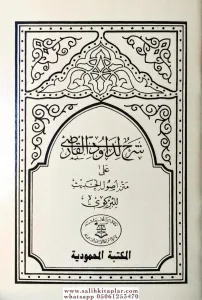 شرح لداود القارصي
على
متن أصول الحديث
للبركوي
المكتبة المحمودية
www.salihkitaplar.com
whatsapp 05061253470